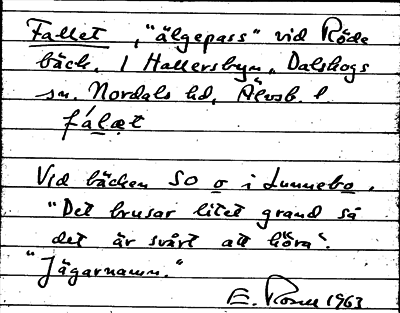 Fallet, "älgepass" vid Röde
bäck. I Hallersbyn, Dalskogs
sn. Nordals hd, Älvsb. l
fálæt
Vid bäcken SO o i Lunnebo.
"Det brusar litet grand så
det är svårt att höra".
"Jägarnamn."
E. 1963